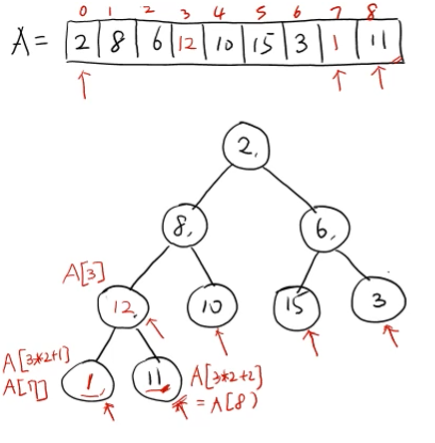 0 1 2 3 4 5 6 7 8
A = 2 8 6 12 10 15 3 1 11
2
8 6
A[3]
12 10 15 3
A[3*2+1]
A[7]
1 11
A[3*2+2]
= A[8]